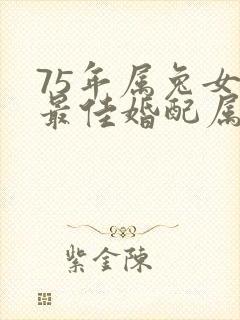 75年属兔女
最佳婚配属
紫金陈